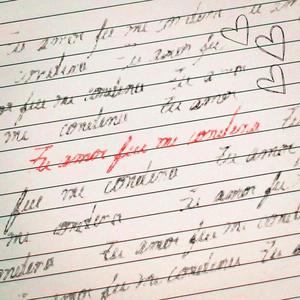 Tu amor fue mi condena
condena Tu amor fue
fue mi condena Tu amor
mi condena Tu amor
Tu amor fue mi condena
fue mi condena Tu amor
mi condena Tu amor fue
condena Tu amor fue mi condena
Tu amor fue mi condena Tu a